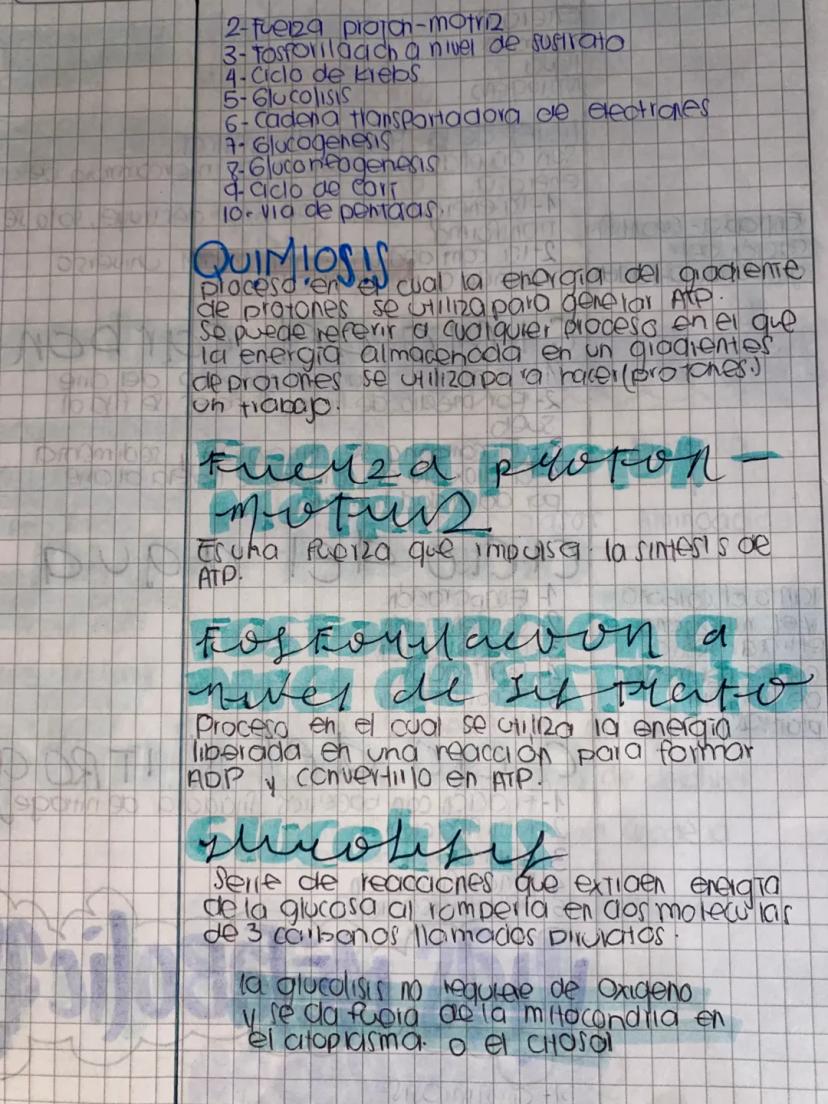 2-Fuerza proton-motriz
3-Fosforilación a nivel de sustrato
4-Ciclo de Krebs
5-Glucolisis
6-Cadena transportadora de electrones
7-Glucogenesis
8-Gluconeogenesis
9-Ciclo de cori
10-via de pentosas.
QUIMIOSIS
proceso en el cual la energía del gradiente
de protones se utiliza para generar ATP.
Se puede referir a cualquier proceso en el que
la energía almacenada en un gradientes
de protones se utiliza para hacer (protones)
un trabajo.
Fuerza proton-
motriz
Es una fuerza que impulsa la sintesis de
ATP.
Fosforilacion a
nivel de sustrato
Proceso en el cual se utiliza la energía
liberada en una reacción para formar
ADP y convertirlo en ATP.
Glucolisis
Serie de reacciones que extraen energía
de la glucosa al romperla en dos moleculas
de 3 carbonos llamados Piruvatos.
la glucolisis no requiere de oxigeno
y se da fuera de la mitocondria en
el citoplasma. o el citosol